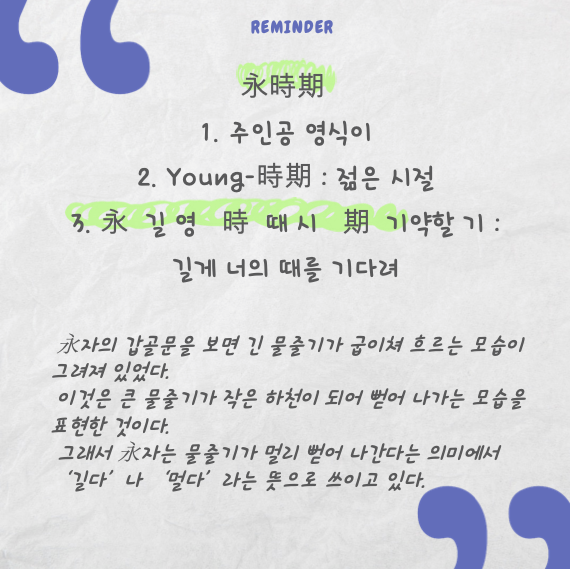 REMINDER
永時期
1. 주인공 영식이
2. Young-時期 : 젊은 시절
3. 永 길 영 時 때 시 期 기약할 기 :
길게 너의 때를 기다려
永자의 갑골문을 보면 긴 물줄기가 굽이쳐 흐르는 모습이
그려져 있었다.
이것은 큰 물줄기가 작은 하천이 되어 뻗어 나가는 모습을
표현한 것이다.
그래서 永자는 물줄기가 멀리 뻗어 나간다는 의미에서
‘길다’ 나 ‘멀다’ 라는 뜻으로 쓰이고 있다.